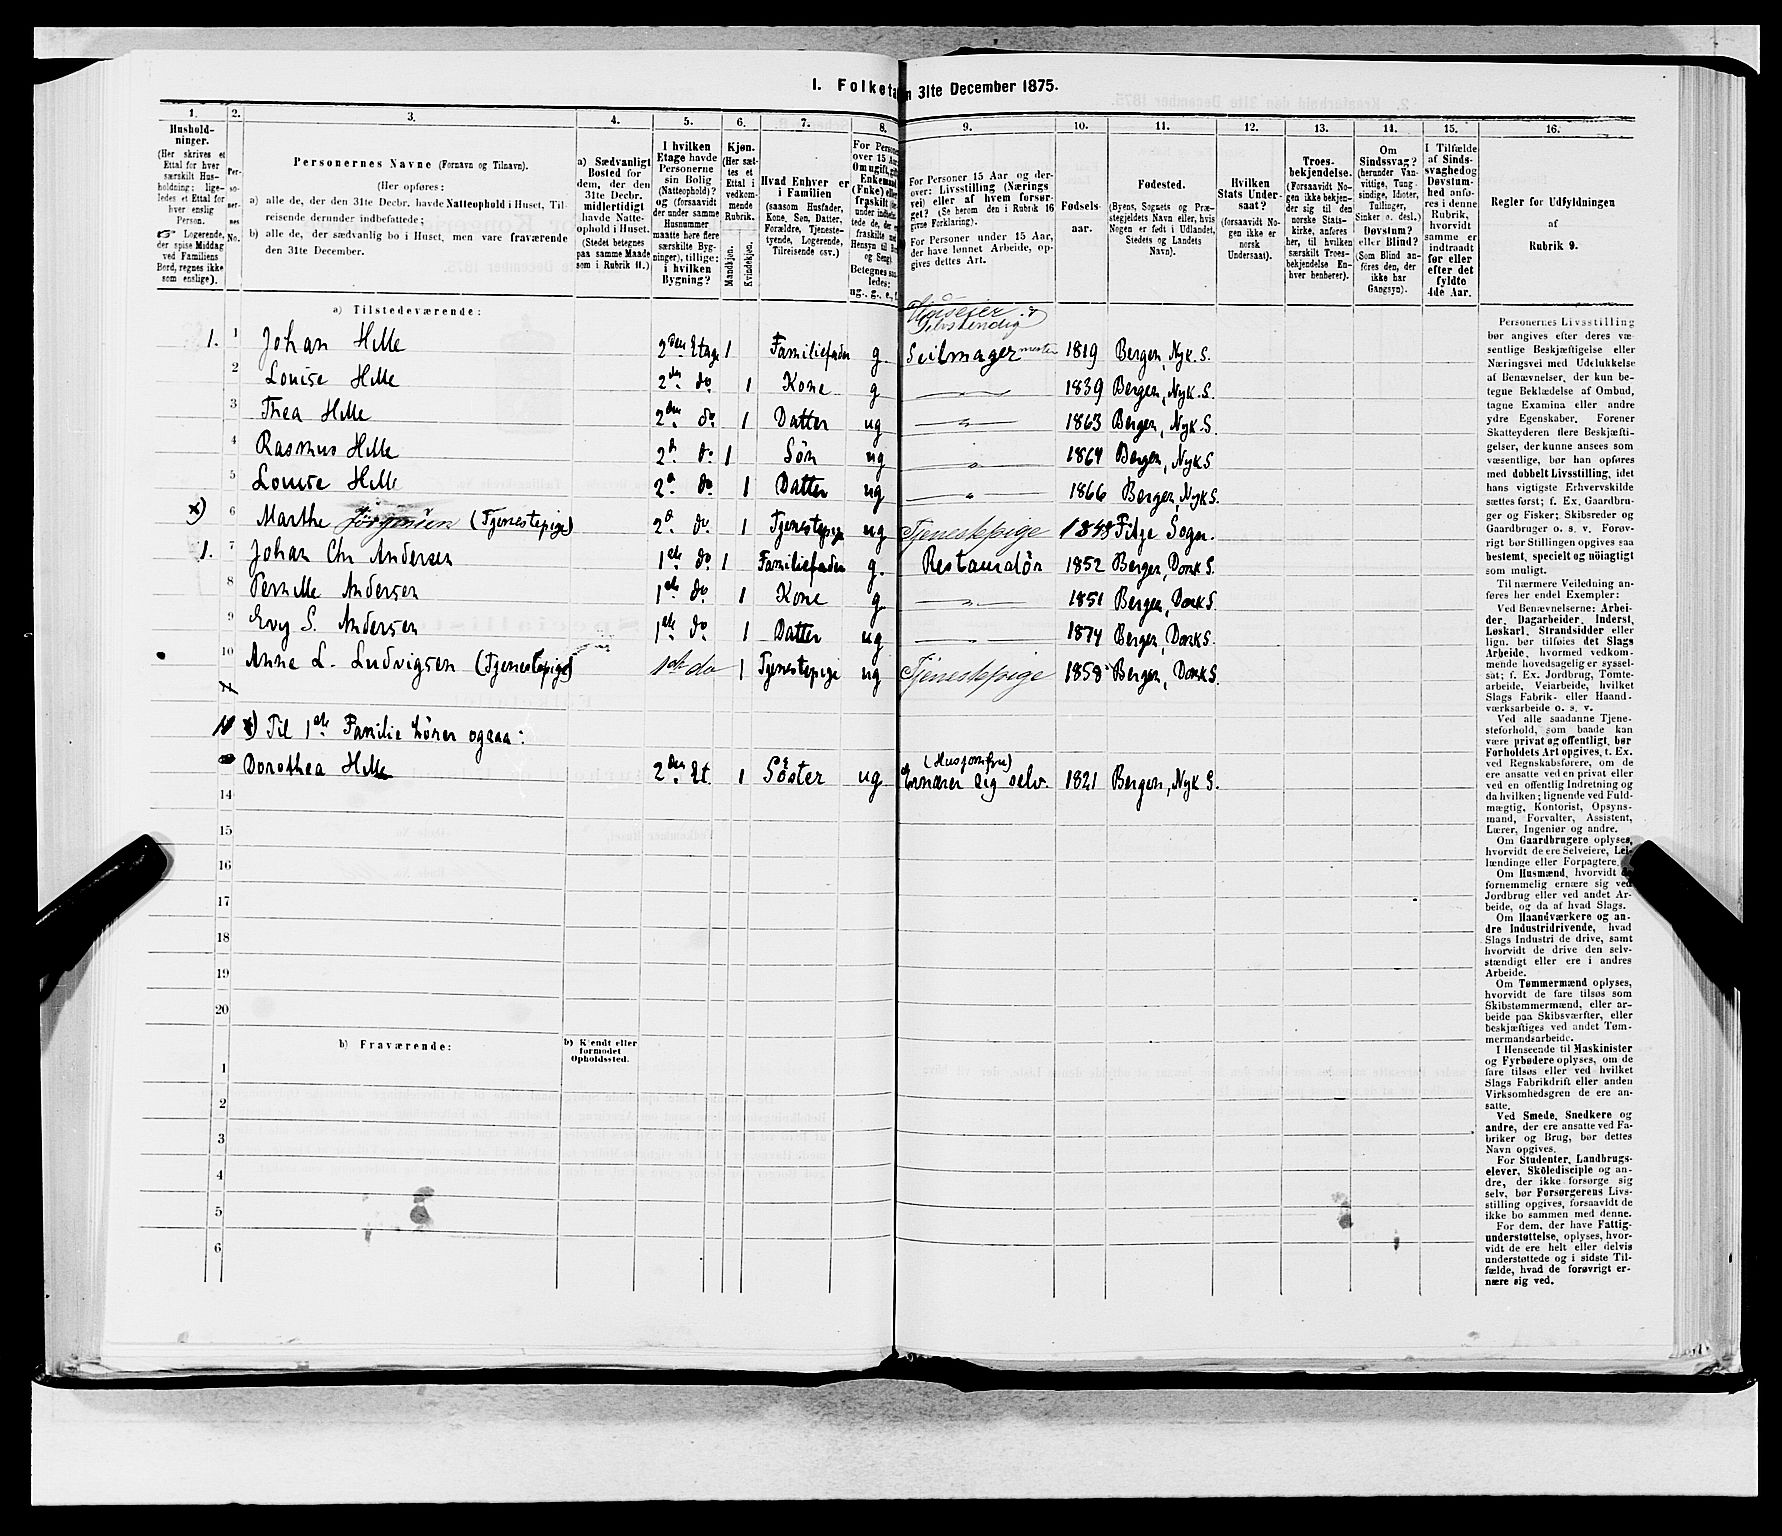 I. Folketæ
n 31te December 1875.
1. 2. 3. 4. 5. 6. 7. 8. 9. 10. 11. 12. 13. 14. 15. 16.
Hushold-
ninger.
(Her skrives et
Ettal for hver
særskilt Hus-
holdning; lige-
ledes et Ettal for
hver enslig
Person.
☞ Logerende,
der spise Middag
ved Familiens
Bord, regnes ikke
som enslige).
Per-
so-
ner-
nes
No.
Personernes Navne (Fornavn og Tilnavn).
(Her opføres:
a) alle de, der den 31te Decbr. havde Natteophold i Huset, Til-
reisende derunder indbefattede;
b) alle de, der sædvanlig bo i Huset, men vare fraværende
den 31te December.
a) Sædvanligt
Bosted for
dem, der den
31te Decbr.
midlertidigt
havde Natte-
ophold i Huset.
(Stedet betegnes
paa samme Maade
som i Rubrik 11.)
I hvilken
Etage havde
Personerne
sin Bolig
(Natteophold)?
og (forsaavidt
der under samme
Husnummer
maatte høre flere
særskilte Byg-
ninger), tillige:
i hvilken
Bygning?
Kjøn.
(Her sæt-
tes et
Ettal i
vedkom-
mende
Rubrik.
Mandkjøn.
Kvindekjøn.
Hvad Enhver er
i Familien
(saasom Husfader,
Kone, Søn, Datter,
Forældre, Tjeneste-
tyende, Logerende,
Tilreisende osv.)
For Persone
over 15 Aar
Om ugift, gift
Enkemand
(Enke) eller
fraskilt
Betegnes saa-
ledes:
ug., g., e., f.
For Personer 15 Aar og der-
over: Livsstilling (Nærings
vei) eller af hvem forsør-
get? (Se herom den i Rubrik 16
givne Forklaring).
For Personer under 15 Aar,
der have lønnet Arbeide, op-
gives dettes Art.
Fødsels-
aar.
Fødested.
(Byens, Sognets og Præ-
stegjeldets Navn eller, hvis
Nogen er født i Udlandet,
Stedets og Landets
Navn).
Hvilken
Stats Under-
saat?
(forsaavidt No-
gen ikke er
norsk
Undersaat).
Troes-
bekjendelse.
(Forsaavidt No-
gen ikke bekjen-
der sig til den
norske Stats-
kirke, anføres
her, til hvilken
særskilt Troes-
bekjendelse En-
hver henhører).
Om
Sindssvag?
(herunder Van-
vittige, Tung-
sindige, Idioter,
Tullinger,
Sinker o. desl.)
Døvstum?
eller Blind?
(Som Blind an-
føres den, der
ikke har
Gangsyn).
I Tilfælde
af Sinds-
svaghed og
Døvstum-
hed anfø-
res i denne
Rubrik,
hvorvidt
samme er
indtraadt
før eller
efter det
fyldte
4de Aar.
Regler for Udfyldningen
af
Rubrik 9.
a) Tilstedeværende:
Huseier &
Selvstendig
1. 1 Johan Hille 2den Etage 1 Familiefader g. Seilmager mester 1819 Bergen, Nyk. S.
2 Louise Hille 2den do 1 Kone g — " — 1839 Bergen, Nyk. S.
3 Thea Hille 2den do 1 Datter ug — " — 1863 Bergen, Nyk. S.
4 Rasmus Hille 2d do 1 Søn ug — " — 1864 Bergen, Nyk S
5 Louise Hille 2d do 1 Datter ug — " — 1866 Bergen, Nyk S.
x) 6 Marthe Jørgensen (Tjenestepige) 2d do 1 Tjenestepige ug Tjenestepige 1848 Fitje Sogn.
1. 7 Johan Chr Andersen 1ste do 1 Familiefader g. Restauratør 1852 Bergen, Domk S.
8 Pernille Andersen 1ste do 1 Kone g — " — 1851 Bergen, Domk S.
9 Evy S. Andersen 1ste do 1 Datter ug — " — 1874 Bergen, Domk S.
10 Anne L. Ludvigsen (Tjenestepige) 1ste do 1 Tjenestepige ug Tjenestepige 1858 Bergen, Domk S.
11
x) Til 1ste Familie hører ogsaa:
(Husjomfru)
Dorothea Hille 2den Et. 1 Söster ug Ernærer sig selv. 1821 Bergen, Nyk S.
14
15
16
17
18
19
20
b) Fraværende:
b) Kjendt eller
formodet
Opholdssted.
1
2
3
4
5
6
Personernes Livsstilling
bør angives efter deres væ-
sentlige Beskjæftigelse eller
Næringsvei med Udelukkelse
af Benævnelser, der kun be-
tegne Beklædelse af Ombud,
tagne Examina eller andre
ydre Egenskaber. Forener
Skatteyderen flere Beskjæfti-
gelser, der kunne ansees som
væsentlige, bør han opføres
med dobbelt Livsstilling, idet
hans vigtigste Erhvervskilde
sættes først; f. Ex. Gaardbru-
ger og Fisker; Skibsreder og
Gaardbruger o. s. v. Forøv-
rigt bør Stillingen opgives saa
bestemt, specielt og nøiagtigt
som muligt.
Til nærmere Veiledning an-
føres her endel Exempler:
Ved Benævnelserne: Arbei-
der, Dagarbeider, Inderst,
Løskarl, Strandsidder eller
lign. bør tilføies det Slags
Arbeide, hvormed vedkom-
mende hovedsagelig er syssel-
sat; f. Ex. Jordbrug, Tomte-
arbeide, Veiarbeide, hvilket
Slags Fabrik- eller Haand-
værksarbeide o. s. v.
Ved alle saadanne Tjene-
steforhold, som baade kan
være privat og offentligt, bør
Forholdets Art opgives, t. Ex.
ved Regnskabsførere, om de
ere ansatte ved en privat eller
ved en offentlig Indretning og
da hvilken; lignende ved Fuld-
mægtig, Kontorist, Opsyns-
mand, Forvalter, Assistent,
Lærer, Ingeniør og andre.
Om Gaardbrugere oplyses,
hvorvidt de ere Selveiere, Lei-
lændinge eller Forpagtere.
Om Husmænd, hvorvidt de
fornemmelig ernære sig ved
Jordbrug eller ved andet Ar-
beide, og da af hvad Slags.
Om Haandværkere og an-
dre Industridrivende, hvad
Slags Industri de drive, samt
hvorvidt de drive den selv-
stændigt eller ere i andres
Arbeide.
Om Tømmermænd oplyses,
hvorvidt de fare tilsøs som
Skibstømmermænd, eller ar-
beide paa Skibsværfter, eller
beskjæftiges ved andet Tøm-
mermandsarbeide.
I Henseende til Maskinister
og Fyrbødere oplyses, om de
fare tilsøs eller ved hvilket
Slags Fabrikdrift eller anden
Virksomhedsgren de ere an-
satte.
Ved Smede, Snedkere og
andre, der ere ansatte ved Fa-
briker og Brug, bør dettes
Navn opgives.
For Studenter, Landbrugs-
elever, Skoledisciple og an-
dre, der ikke forsørge sig
selv, bør Forsørgerens Livs-
stilling opgives, forsaavidt de
ikke bo sammen med denne.
For dem, der have Fattig-
understøttelse, oplyses, hvor-
vidt de ere helt eller delvis
understøttede og i sidste Til-
fælde, hvad de forøvrigt er-
nære sig ved.